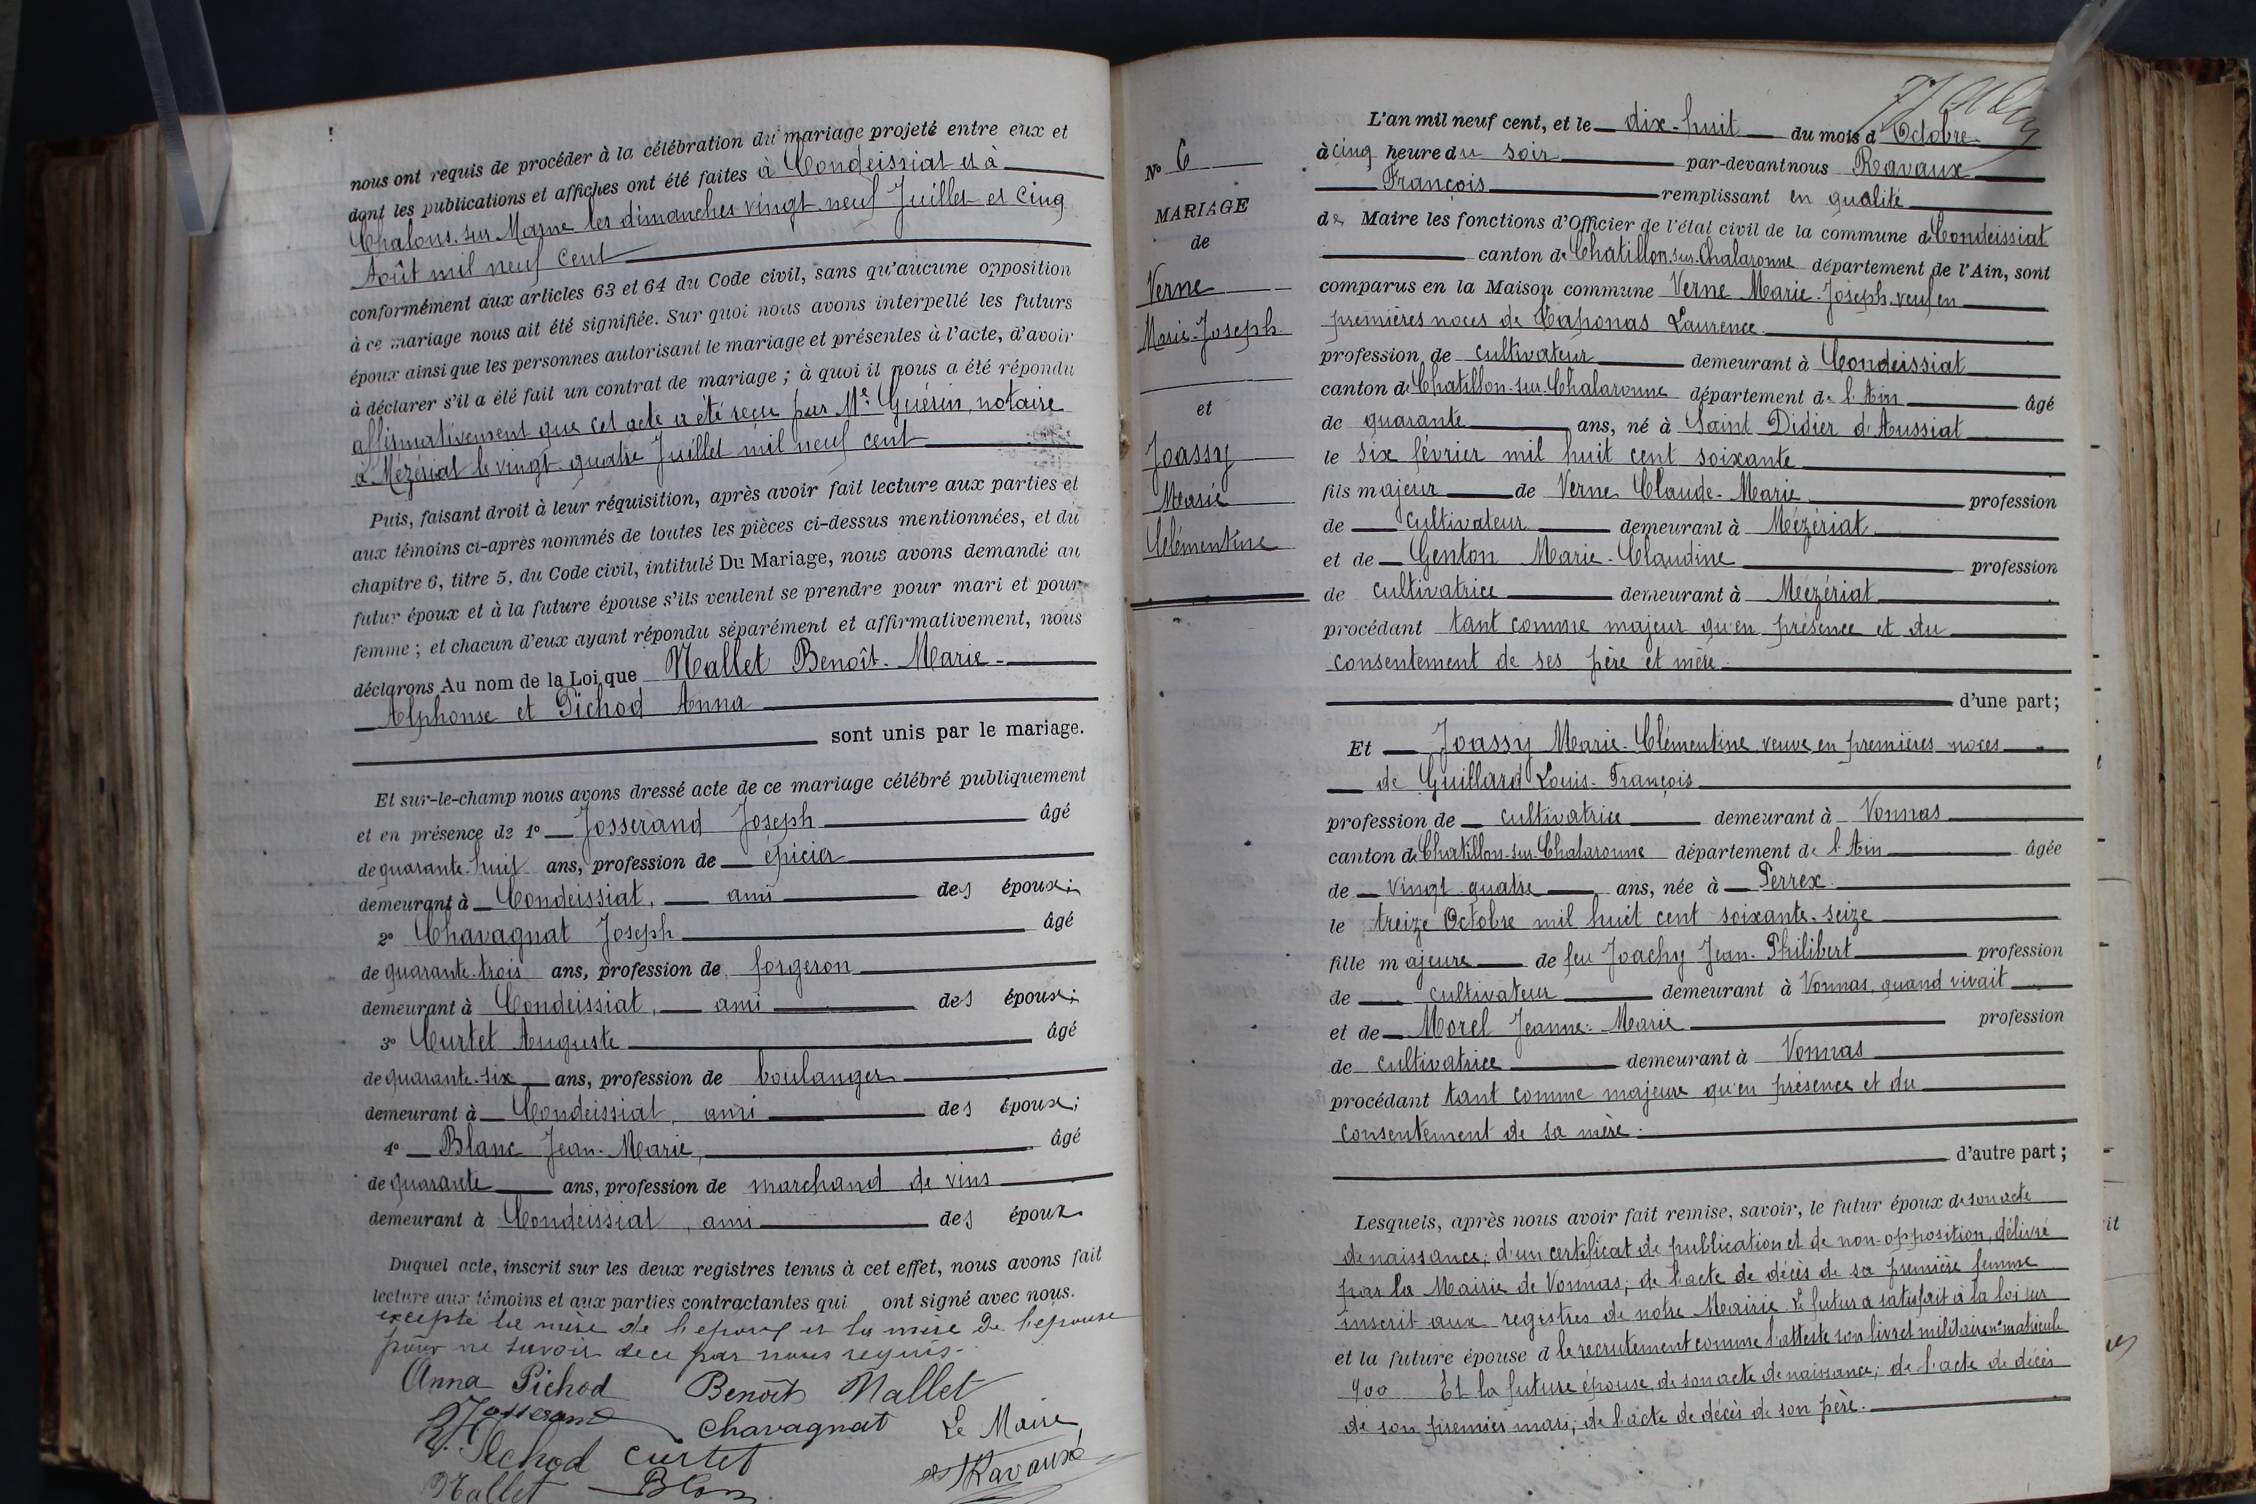 nous ont requis de procéder à la célébration du mariage projeté entre eux et
dont les publications et affiches ont été faites à Condeissiat et à
Chalons-sur-Marne les dimanches vingt-neuf Juillet et cinq
Août mil neuf cent
conformément aux articles 63 et 64 du Code civil, sans qu'aucune opposition
à ce mariage nous ait été signifiée. Sur quoi nous avons interpellé les futurs
époux ainsi que les personnes autorisant le mariage et présentes à l'acte, d'avoir
à déclarer s'il a été fait un contrat de mariage ; à quoi il nous a été répondu
affirmativement que cet acte a été reçu par Me Guérin, notaire
à Mézériat le vingt-quatre Juillet mil neuf cent
Puis, faisant droit à leur réquisition, après avoir fait lecture aux parties et
aux témoins ci-après nommés de toutes les pièces ci-dessus mentionnées, et du
chapitre 6, titre 5, du Code civil, intitulé Du Mariage, nous avons demandé au
futur époux et à la future épouse s'ils veulent se prendre pour mari et pour
femme ; et chacun d'eux ayant répondu séparément et affirmativement, nous
déclarons Au nom de la Loi que Mallet Benoît-Marie-
Alphonse et Pichod Anna
sont unis par le mariage.
Et sur-le-champ nous avons dressé acte de ce mariage célébré publiquement
et en présence de 1° Josserand Joseph âgé
de quarante-huit ans, profession de épicier
demeurant à Condeissiat, ami des époux ;
2° Chavagnat Joseph âgé
de quarante-trois ans, profession de forgeron
demeurant à Condeissiat, ami des époux ;
3° Curtet Auguste âgé
de quarante-six ans, profession de boulanger
demeurant à Condeissiat, ami des époux ;
4° Blanc Jean-Marie, âgé
de quarante ans, profession de marchand de vins
demeurant à Condeissiat, ami des époux
Duquel acte, inscrit sur les deux registres tenus à cet effet, nous avons fait
lecture aux témoins et aux parties contractantes qui ont signé avec nous.
excepté la mère de l'époux et la mère de l'épouse
pour ne savoir de ce par nous requis.
Anna Pichod Benoit Mallet
Josserand Chavagnat Le Maire
Pichod Curtet Ravaux
Mallet Blanc
N° 6
MARIAGE
de
Verne
Marie-Joseph
et
Joassy
Marie
Clémentine
L'an mil neuf cent, et le dix-huit du mois d'Octobre
à cinq heure du soir par-devant nous Ravaux
François remplissant en qualité
de Maire les fonctions d'Officier de l'état civil de la commune de Condeissiat
canton de Chatillon-sur-Chalaronne département de l'Ain, sont
comparus en la Maison commune Verne Marie-Joseph veuf en
premières noces de Caponas Laurence
profession de cultivateur demeurant à Condeissiat
canton de Chatillon-sur-Chalaronne département de l'Ain âgé
de quarante ans, né à Saint Didier d'Aussiat
le six février mil huit cent soixante
fils majeur de Verne Claude-Marie profession
de cultivateur demeurant à Mézériat
et de Genton Marie-Claudine profession
de cultivatrice demeurant à Mézériat
procédant tant comme majeur qu'en présence et du
consentement de ses père et mère
d'une part ;
Et Joassy Marie-Clémentine veuve en premières noces
de Guillard Louis-François
profession de cultivatrice demeurant à Vonnas
canton de Chatillon-sur-Chalaronne département de l'Ain âgée
de vingt-quatre ans, née à Perrex
le treize Octobre mil huit cent soixante-seize
fille majeure de feu Joachy Jean-Philibert profession
de cultivateur demeurant à Vonnas, quand vivait
et de Morel Jeanne-Marie profession
de cultivatrice demeurant à Vonnas
procédant tant comme majeure qu'en présence et du
consentement de sa mère.
d'autre part ;
Lesquels, après nous avoir fait remise, savoir, le futur époux de son acte
de naissance ; d'un certificat de publication et de non-opposition, délivré
par la Mairie de Vonnas ; de l'acte de décès de sa première femme
inscrit aux registres de notre Mairie. Le futur a satisfait à la loi sur
et la future épouse d le recrutement comme l'atteste son livret militaire n° matricule
900 Et la future épouse, de son acte de naissance ; de l'acte de décès
de son premier mari ; de l'acte de décès de son père.